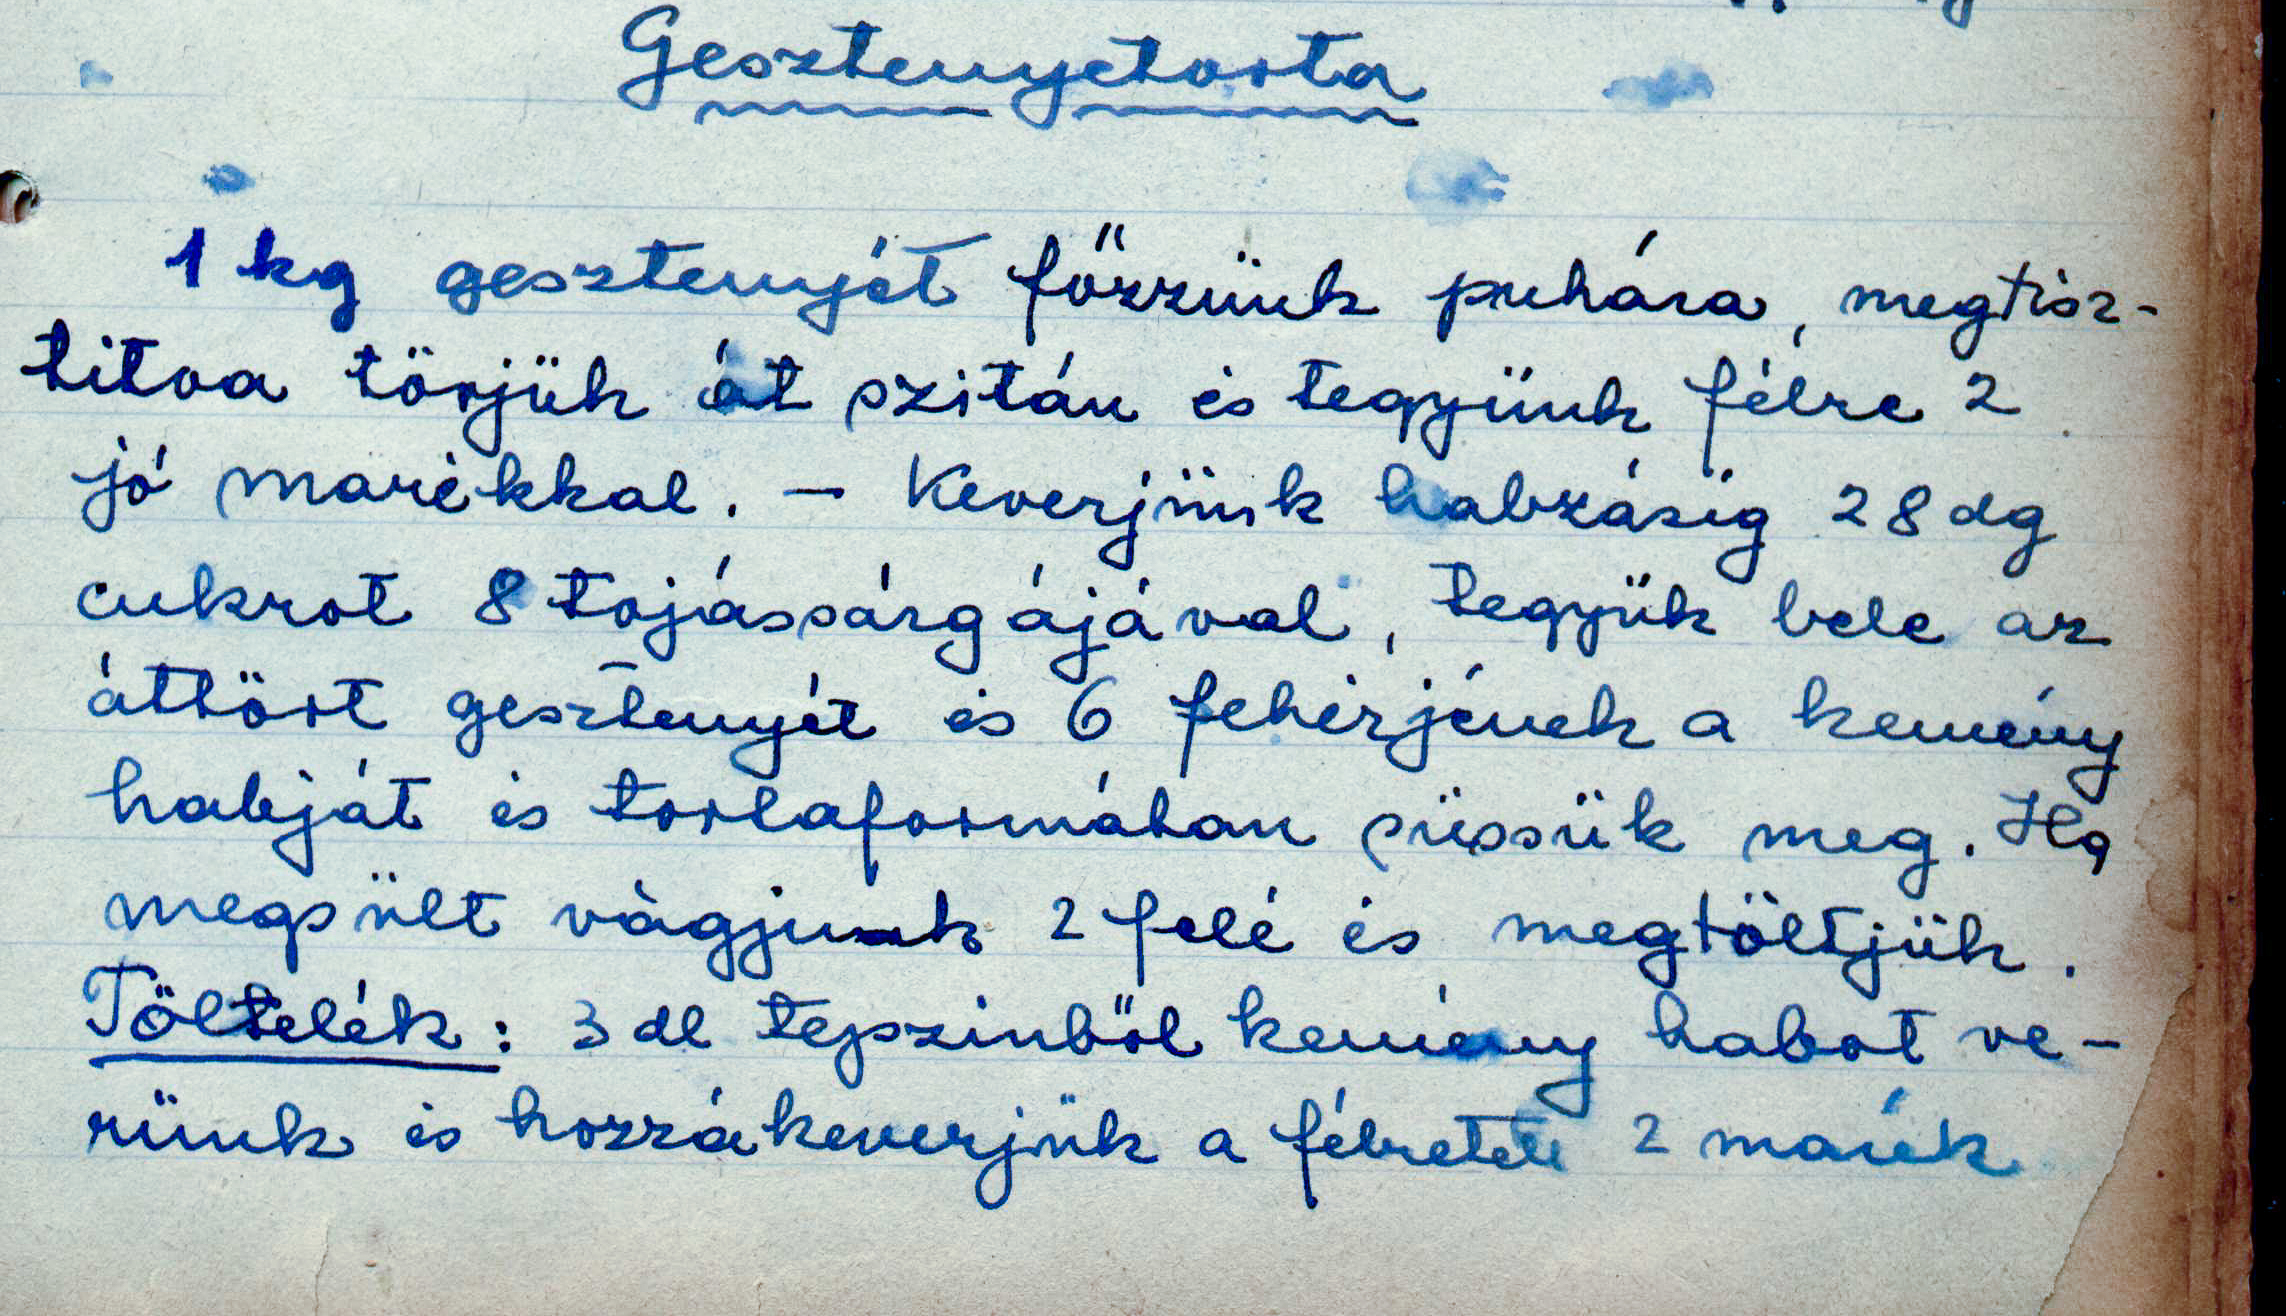 Gesztenyetorta
1 kg gesztenyét főzzünk puhára, megtisz-
titva törjük át szitán és tegyünk félre 2
jó marékkal. – Keverjünk habzásig 28 dg
cukrot 8 tojássárgájával, tegyük bele az
áttört gesztenyét és 6 fehérjének a kemény
habját és tortaformában süssük meg. Ha
megsült vágjuk 2 felé és megtöltjük.
Töltelék: 3 dl tejszinből kemény habot ve-
rünk és hozzákeverjük a félretett 2 marék